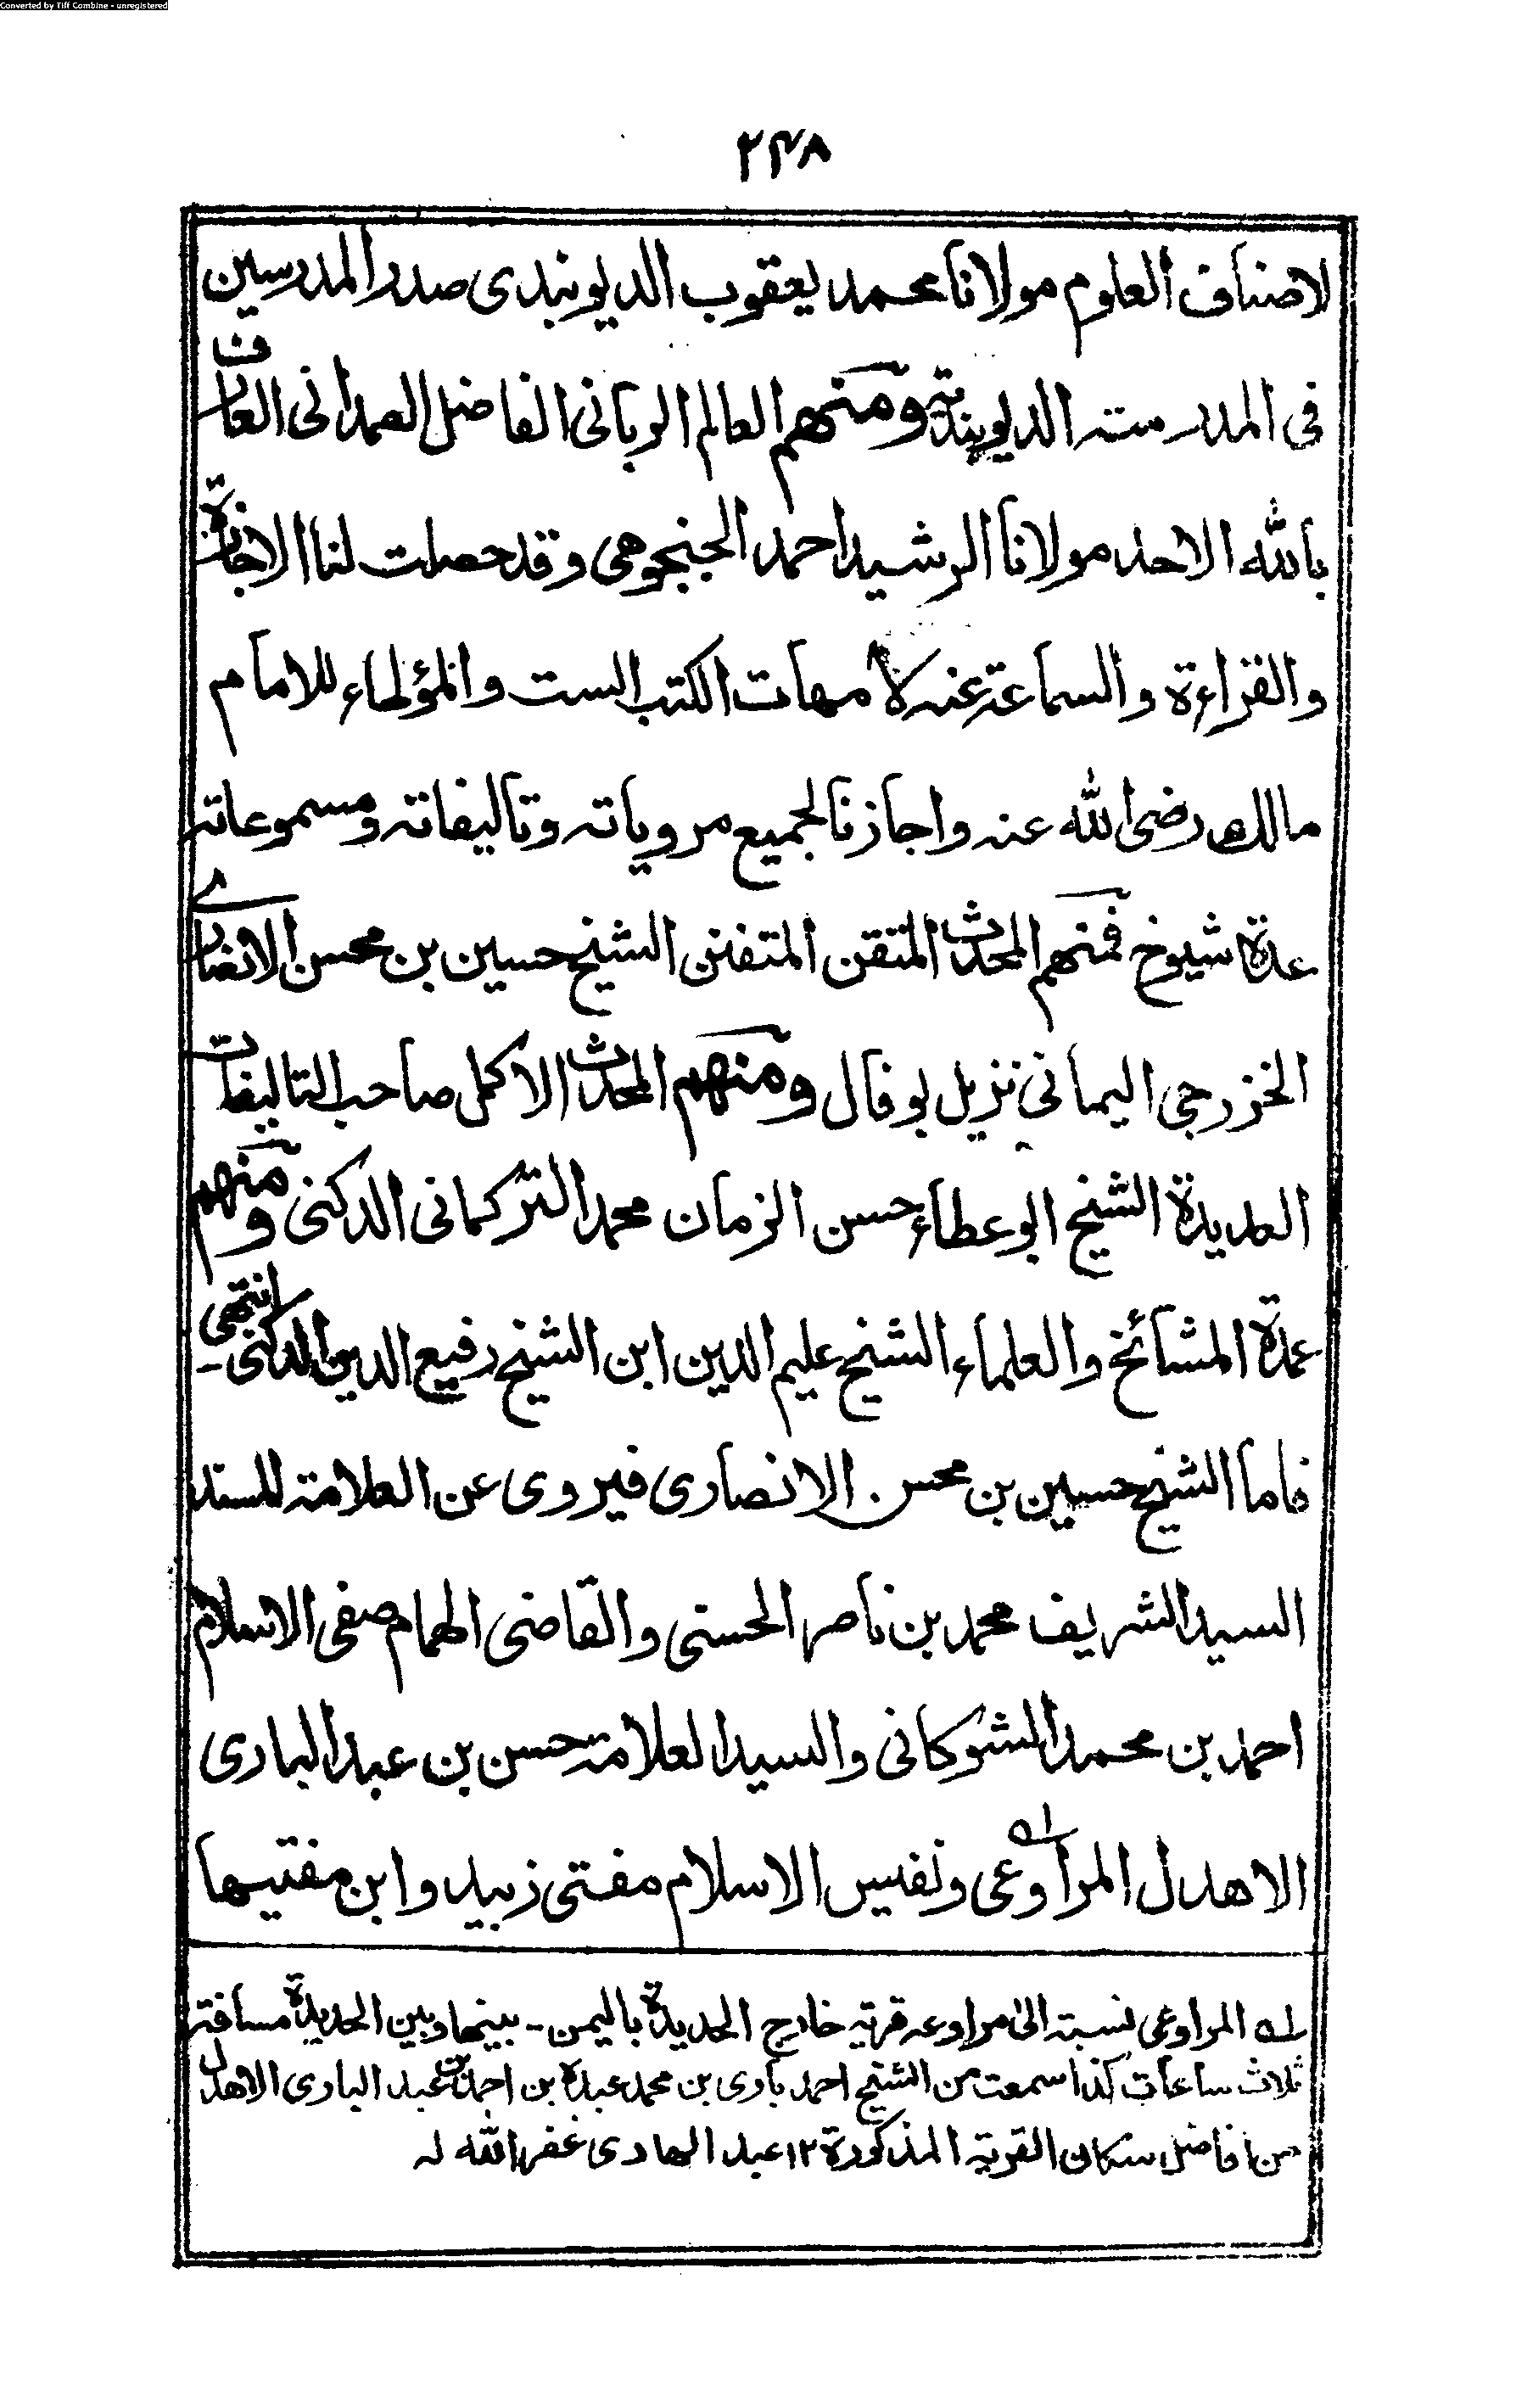 Converted by Tiff Combine - unregistered
٢٤٨
لاصناف العلوم مولانا محمد يعقوب الديوبندى صدر المدرسين
فى المدرسته الديوبندية ومنهم العالم الربانى الفاضل الصمدانى العارف
بالله الاحد مولانا الرشيد احمد الجنجوهى وقد حصلت لنا الاجازة
والقراءة والسماعة عنه لامهات الكتب الست والمؤطاء للامام
مالك رضى الله عنه واجازنا لجميع مروياته وتاليفاته ومسموعاته
عدة شيوخ فمنهم المحدث المتقن المتفنن الشيخ حسين بن محسن الانصارى
الخزرجى اليمانى نزيل بوفال ومنهم المحدث الاكمل صاحب التاليفات
العديدة الشيخ ابو عطاء حسن الزمان محمد التركمانى الدكنى ومنهم
عمدة المشائخ والعلماء الشيخ عليم الدين ابن الشيخ رفيع الدين الدكنى انتهى -
فاما الشيخ حسين بن محسن الانصارى فيروى عن العلامة المسند
السيد الشريف محمد بن ناصر الحسنى والقاضى الهمام صفى الاسلام
احمد بن محمد الشوكانى والسيد العلامة حسن بن عبد البارى
الاهدل المراوعى ونفيس الاسلام مفتى زبيد وابن مفتيها
له المراوعى نسبته الى مراوعه قرية خارج الحديدة باليمن - بينها وبين الحديدة مسافة
ثلاث ساعات كذا سمعت من الشيخ احمد بارى بن محمد عبده بن احمد بن عبد البارى الاهدل
من افاضل سكان القرية المذكورة ١٢ عبد الهادى غفر الله له